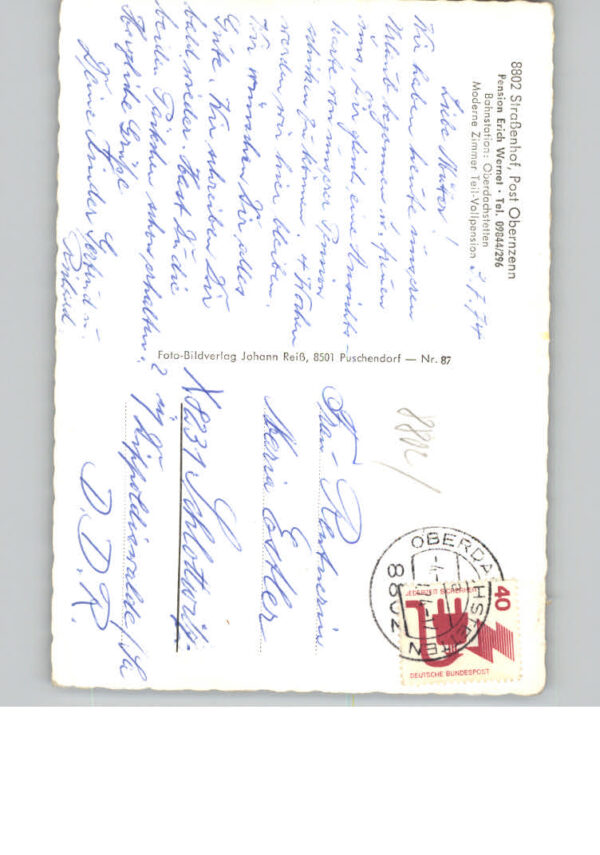 8802 Straßenhof, Post Obernzenn
Pension Erich Wernet · Tel. 09844/296
Bahnstation: Oberdachstetten
Moderne Zimmer Teil-Vollpension
2.7.74
Liebe Mutter!
Wir haben heute unseren
Urlaub begonnen u. freuen
uns, Dir gleich eine Ansichts-
karte von unserer Pension
schicken zu können. 4 Wochen
werden wir hier bleiben.
Wir wünschen Dir alles
Gute. Wir schreiben Dir
bald wieder. Hast Du die
beiden Päckchen schon erhalten?
Herzliche Grüße
Deine Kinder u.
Foto-Bildverlag Johann Reiß, 8501 Puschendorf — Nr. 87
8802/
Frau Rentnerin
Maria
X 8231 Schlottwitz
Dippoldiswalde/Sa
D.D.R.
OBERDACHSTETTEN
8802
40
JEDERZEIT SICHERHEIT
DEUTSCHE BUNDESPOST